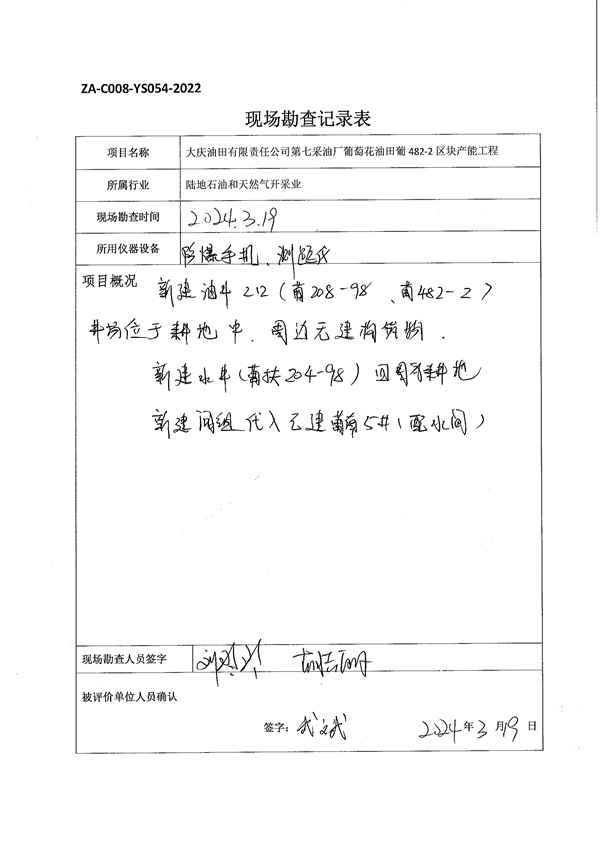 ZA-C008-YS054-2022
现场勘查记录表
项目名称 大庆油田有限责任公司第七采油厂葡萄花油田葡 482-2 区块产能工程
所属行业 陆地石油和天然气开采业
现场勘查时间 2024.3.19
所用仪器设备 防爆手机、测距仪
项目概况 新建油井 2口（葡208-98、葡482-2）
井场位于耕地中、周边无建构筑物.
新建水井（葡扶204-98）四周为耕地
新建阀组 代入已建葡南5#（配水间）
现场勘查人员签字
被评价单位人员确认
签字： 2024 年 3 月 19 日